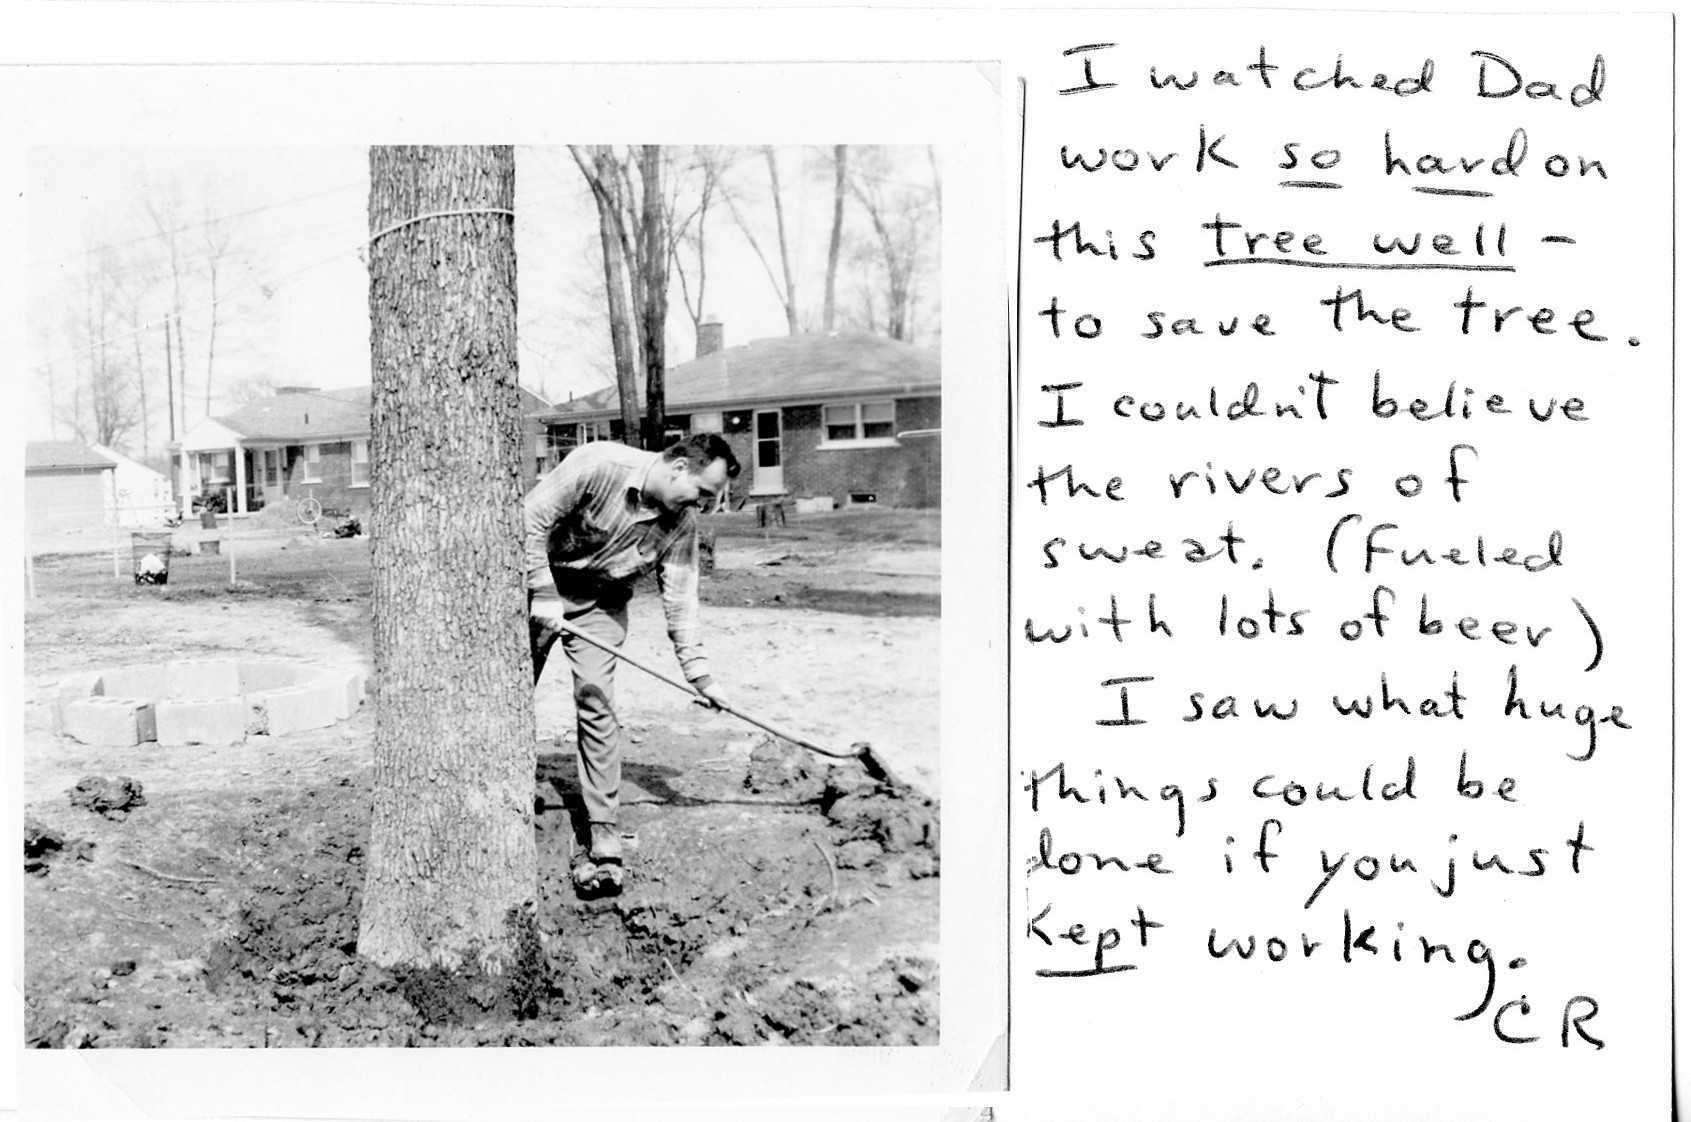 I watched Dad
work so hard on
this tree well -
to save the tree.
I couldn't believe
the rivers of
sweat. (Fueled
with lots of beer)
I saw what huge
things could be
done if you just
kept working.
CR